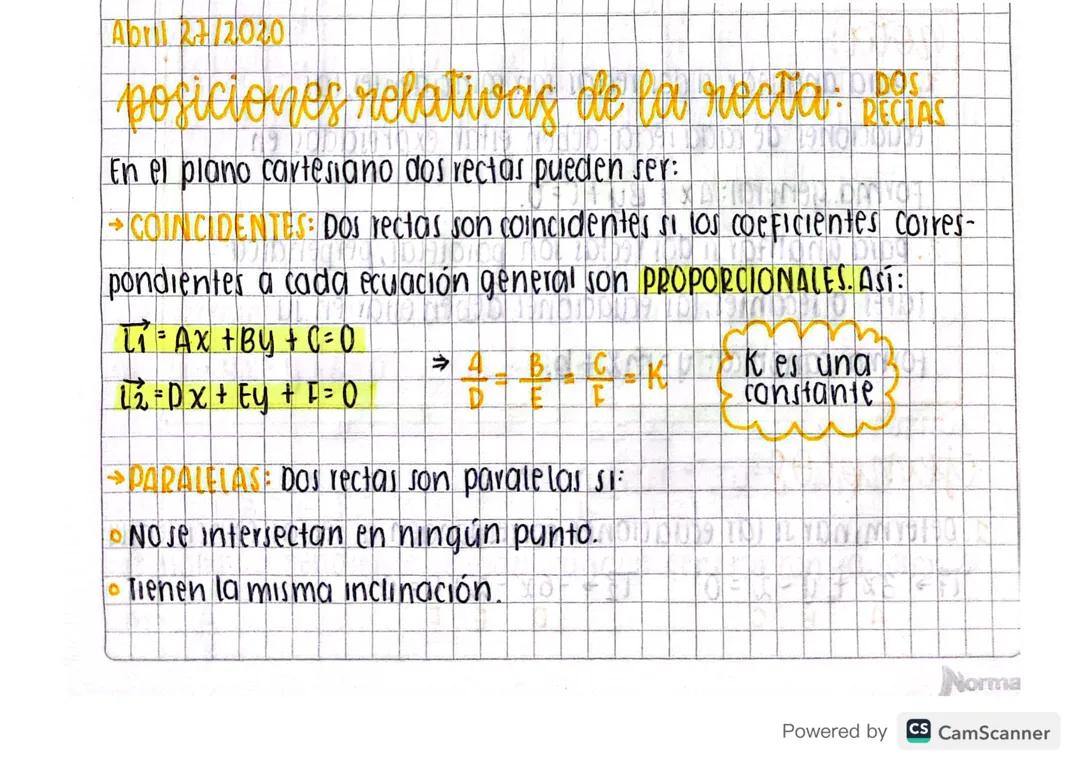 Abril 27/2020
posiciones relativas de la recta: DOS RECTAS
En el plano cartesiano dos rectas pueden ser:
→ COINCIDENTES: Dos rectas son coincidentes si los coeficientes corres-
pondientes a cada ecuación general son PROPORCIONALES. Así:
L1 = Ax + By + C = 0
L2 = Dx + Ey + F = 0
⇒ A/D = B/E = C/F = K
K es una
constante
→ PARALELAS: Dos rectas son paralelas si:
No se intersectan en ningún punto.
Tienen la misma inclinación.
Norma
Powered by CS CamScanner